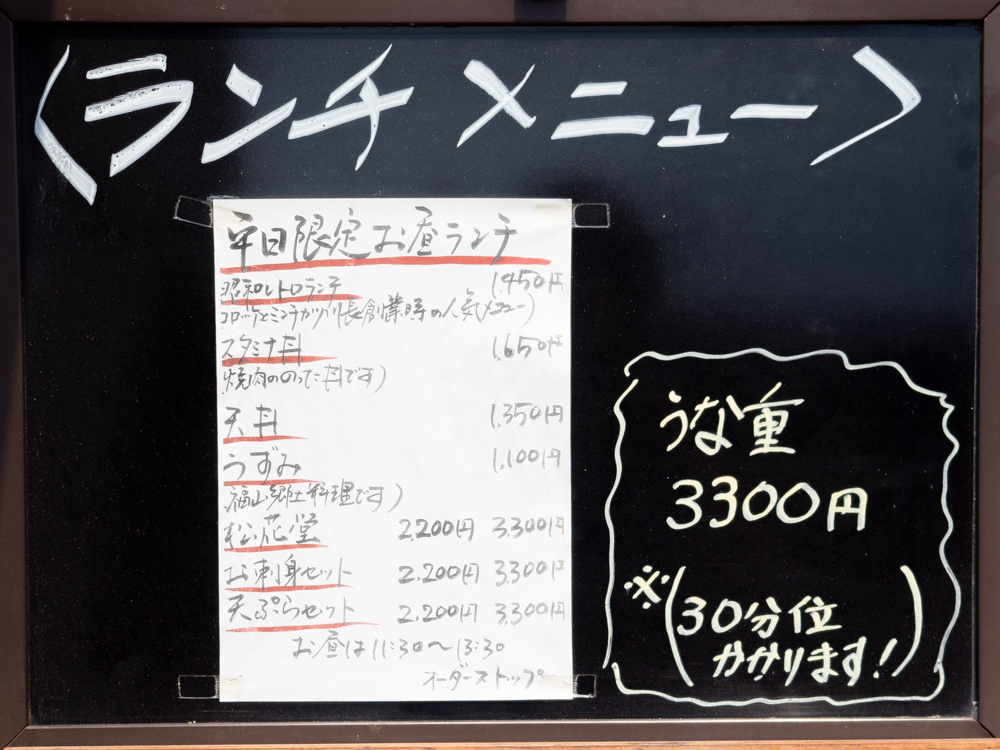 〈ランチメニュー〉
平日限定お昼ランチ
昭和レトロランチ 1,450円
コロッケとミンチカツ 創業時の人気メニュー)
スタミナ丼 1,650円
焼肉ののった丼です)
天丼 1,350円
うずみ 1,100円
福山郷土料理です)
松花堂 2,200円 3,300円
お刺身セット 2,200円 3,300円
天ぷらセット 2,200円 3,300円
お昼は11:30〜13:30
オーダーストップ
うな重
3300円
※(30分位
かかります!)